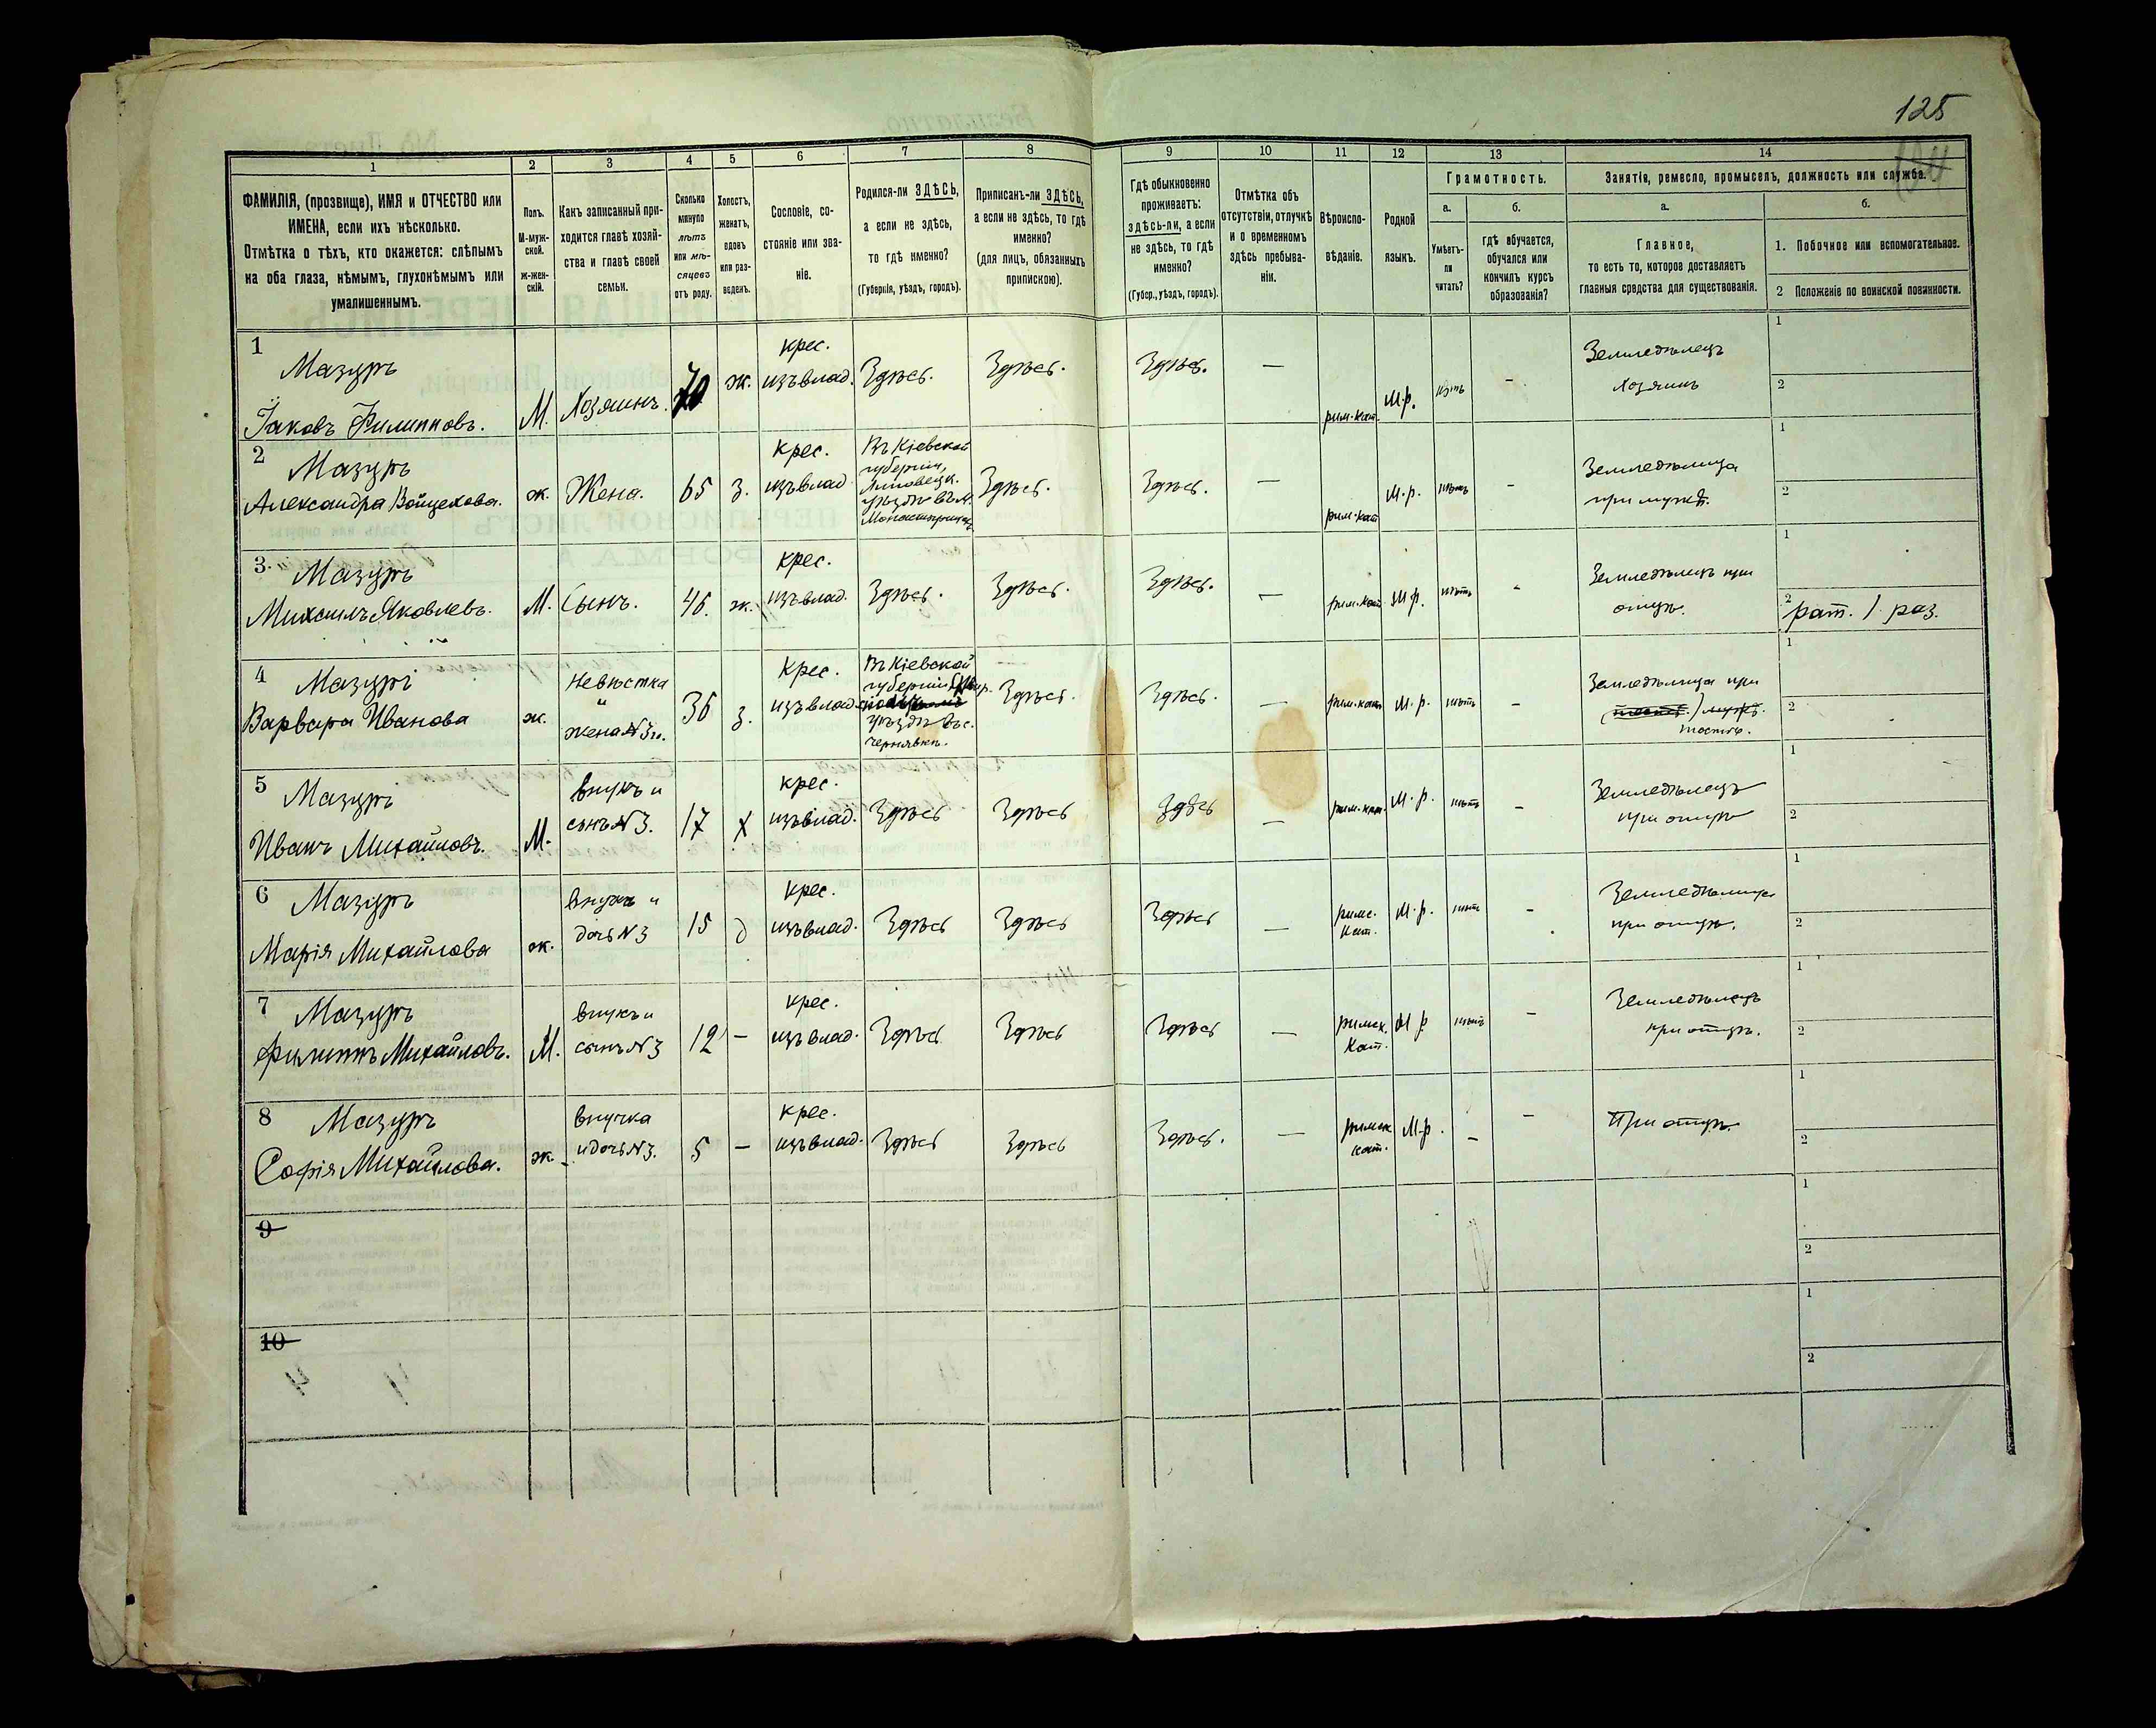 125
1 2 3 4 5 6 7 8 9 10 11 12 13 14
ФАМИЛІЯ, (прозвище), ИМЯ и ОТЧЕСТВО или
ИМЕНА, если ихъ нѣсколько.
Отмѣтка о тѣхъ, кто окажется: слѣпымъ
на оба глаза, нѣмымъ, глухонѣмымъ или
умалишеннымъ.
Полъ.
М-муж-
ской.
Ж-жен-
скій.
Какъ записанный при-
ходится главѣ хозяй-
ства и главѣ своей
семьи.
Сколько
минуло
лѣтъ
или мѣ-
сяцевъ
отъ роду.
Холостъ,
женатъ,
вдовъ
или раз-
веденъ.
Сословіе, со-
стояніе или зва-
ніе.
Родился-ли ЗДѢСЬ,
а если не здѣсь,
то гдѣ именно?
(Губернія, уѣздъ, городъ).
Приписанъ-ли ЗДѢСЬ,
а если не здѣсь, то гдѣ
именно?
(для лицъ, обязанныхъ
припискою).
Гдѣ обыкновенно
проживаетъ:
здѣсь-ли, а если
не здѣсь, то гдѣ
именно?
(Губер., уѣздъ, городъ).
Отмѣтка объ
отсутствіи, отлучкѣ
и о временномъ
здѣсь пребыва-
ніи.
Вѣроиспо-
вѣданіе.
Родной
языкъ.
Грамотность.
а.
Умѣетъ-
ли
читать?
б.
гдѣ обучается,
обучался или
кончилъ курсъ
образованія?
Занятіе, ремесло, промыселъ, должность или служба.
а.
Главное,
то есть то, которое доставляетъ
главныя средства для существованія.
б.
1. Побочное или вспомогательное.
2 Положеніе по воинской повинности.
1
Мазуръ
Іаковъ Филипповъ.
М.
Хозяинъ.
70
ж.
крес.
изъ влад.
Здѣсь.
Здѣсь.
Здѣсь.
—
рим.-кат.
М.р.
нѣтъ
-
Земледѣлецъ
хозяинъ
1
2
2
Мазуръ
Александра Войцехова.
ж.
Жена.
65
з.
крес.
изъ влад
Въ Кіевской
губерніи,
Липовецк.
уѣздѣ въ м.
Здѣсь.
Здѣсь.
—
рим.-кат
М.р.
нѣтъ
-
Земледѣлица
при мужѣ.
1
2
3.
Мазуръ
Михаилъ Яковлевъ.
М.
Сынъ.
46.
ж.
крес.
изъ влад.
Здѣсь.
Здѣсь.
Здѣсь.
—
рим.-кат
М.р.
нѣтъ
-
Земледѣлецъ при
отцѣ.
1
2
рат. 1 раз.
4
Мазуръ
Варвара Иванова
ж.
Невѣстка
и
жена №3й.
36
з.
Крес.
изъ влад.
Въ Кіевской
губерніи Сквир.
уѣздѣ въ с.
Чернявкѣ.
Здѣсь.
Здѣсь.
—
рим.-кат
М.р.
нѣтъ
-
Земледѣлица при
мужѣ.
1
2
5
Мазуръ
Иванъ Михайловъ.
М.
внукъ и
сынъ №3.
17
х
крес.
изъ влад.
Здѣсь
Здѣсь
Здѣсь
—
рим.-кат.
М.р.
нѣтъ
-
Земледѣлецъ
при отцѣ
1
2
6
Мазуръ
Марія Михайлова
ж.
внучка и
дочь №3
15
д
крес.
изъ влад.
Здѣсь
Здѣсь
Здѣсь
—
римс.
кат.
М.р.
нѣтъ
-
Земледѣлица
при отцѣ.
1
2
7
Мазуръ
Филиппъ Михайловъ.
М.
внукъ и
сынъ №3
12
—
крес.
изъ влад.
Здѣсь
Здѣсь
Здѣсь
—
римск.
кат.
М р
нѣтъ
-
Земледѣлецъ
при отцѣ.
1
2
8
Мазуръ
Софія Михайлова.
ж.
внучка
и дочь №3.
5
—
крес.
изъ влад.
Здѣсь
Здѣсь
Здѣсь.
—
римск
кат.
М.р.
-
-
При отцѣ.
1
2
9
1
2
10
1
2